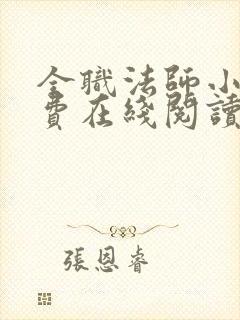 全職法師小
費在綫閱讀
張恩睿